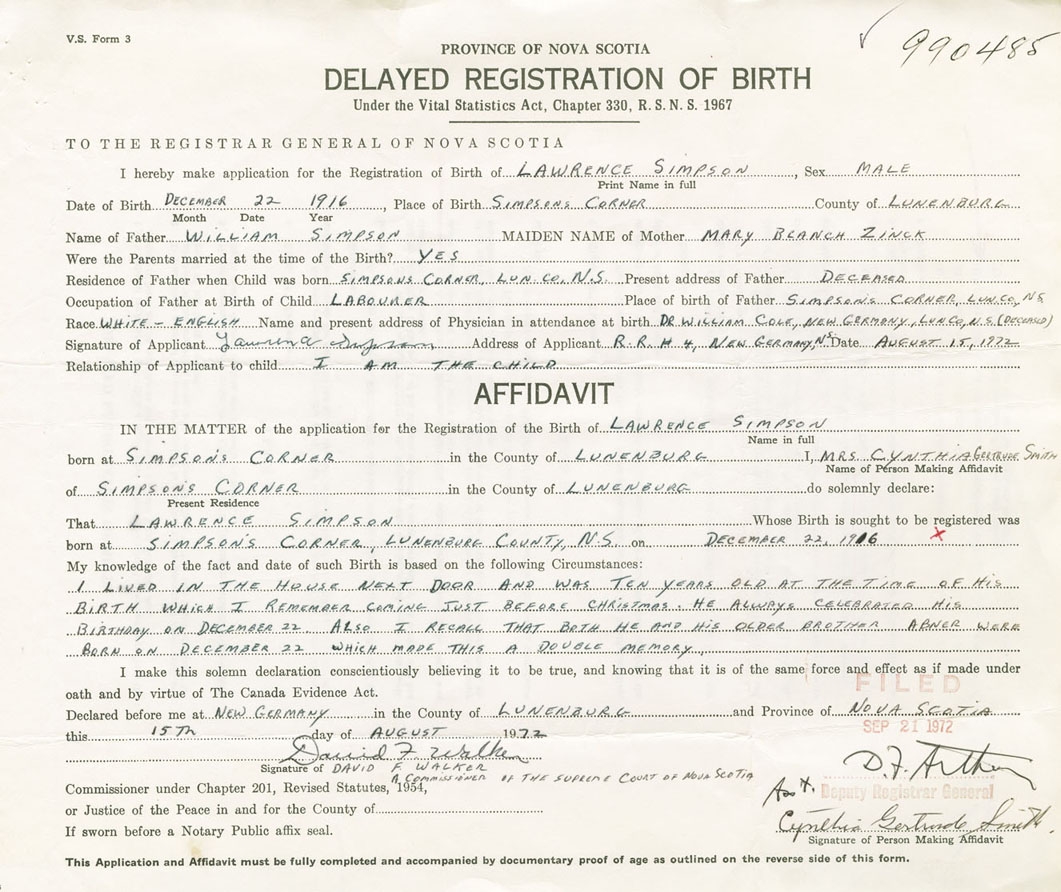 V.S. Form 3
990485
PROVINCE OF NOVA SCOTIA
DELAYED REGISTRATION OF BIRTH
Under the Vital Statistics Act, Chapter 330, R.S.N.S. 1967
TO THE REGISTRAR GENERAL OF NOVA SCOTIA
I hereby make application for the Registration of Birth of LAWRENCE SIMPSON, Sex MALE
Print Name in full
Date of Birth DECEMBER 22 1916, Place of Birth SIMPSONS CORNER County of LUNENBURG
Month Date Year
Name of Father WILLIAM SIMPSON MAIDEN NAME of Mother MARY BLANCH ZINCK
Were the Parents married at the time of the Birth? YES
Residence of Father when Child was born SIMPSONS CORNER, LUN. CO., N.S. Present address of Father DECEASED
Occupation of Father at Birth of Child LABOURER Place of birth of Father SIMPSON'S CORNER, LUN.CO, NS
Race WHITE - ENGLISH Name and present address of Physician in attendance at birth DR WILLIAM COLE, NEW GERMANY, LUN.CO, N.S. (DECEASED)
Signature of Applicant Lawrence Simpson Address of Applicant R.R. # 4, NEW GERMANY, NS Date AUGUST 15, 1972
Relationship of Applicant to child I AM THE CHILD
AFFIDAVIT
IN THE MATTER of the application for the Registration of the Birth of LAWRENCE SIMPSON
Name in full
born at SIMPSON'S CORNER in the County of LUNENBURG I, MRS CYNTHIA GERTRUDE SMITH
Name of Person Making Affidavit
of SIMPSON'S CORNER in the County of LUNENBURG do solemnly declare:
Present Residence
That LAWRENCE SIMPSON Whose Birth is sought to be registered was
born at SIMPSON'S CORNER, LUNENBURG COUNTY, N.S. on DECEMBER 22, 1916 x
My knowledge of the fact and date of such Birth is based on the following Circumstances:
I LIVED IN THE HOUSE NEXT DOOR AND WAS TEN YEARS OLD AT THE TIME OF HIS
BIRTH WHICH I REMEMBER COMING JUST BEFORE CHRISTMAS. HE ALWAYS CELEBRATED HIS
BIRTHDAY ON DECEMBER 22. ALSO I RECALL THAT BOTH HE AND HIS OLDER BROTHER ABNER WERE
BORN ON DECEMBER 22 WHICH MADE THIS A DOUBLE MEMORY.
I make this solemn declaration conscientiously believing it to be true, and knowing that it is of the same force and effect as if made under
oath and by virtue of The Canada Evidence Act.
FILED
Declared before me at NEW GERMANY in the County of LUNENBURG and Province of NOVA SCOTIA
SEP 21 1972
this 15TH day of AUGUST 1972
David F. Walker
Signature of DAVID F. WALKER
A COMMISSIONER OF THE SUPREME COURT OF NOVA SCOTIA
Commissioner under Chapter 201, Revised Statutes, 1954,
or Justice of the Peace in and for the County of
If sworn before a Notary Public affix seal.
Asst. Deputy Registrar General
Cynthia Gertrude Smith
Signature of Person Making Affidavit
This Application and Affidavit must be fully completed and accompanied by documentary proof of age as outlined on the reverse side of this form.